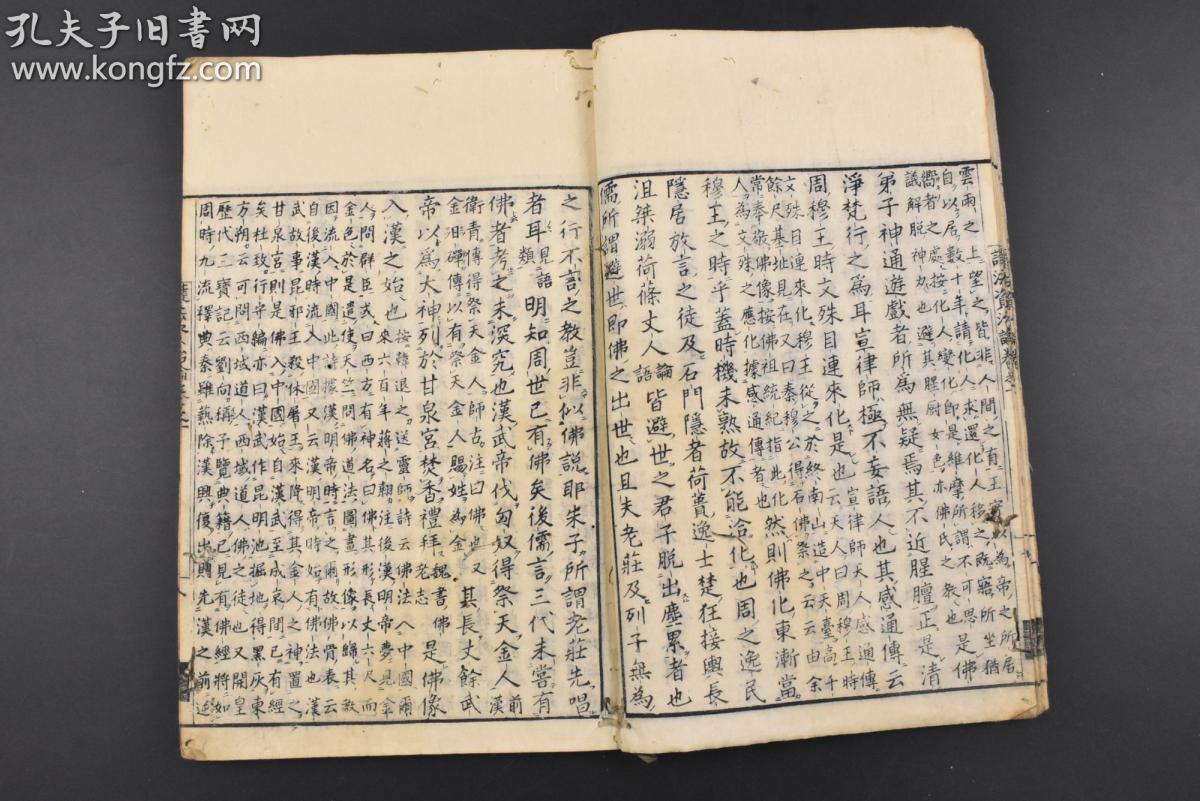 孔夫子旧书网
www.kongfz.com
雲雨之上望之皆非人間之有王實以為帝之所居
自以居數十年請化人求還化人移之既寤所坐猶
嚮者之處按化人變化即是維摩所謂不可思
議解脫神力也避其腥厨女色亦佛氏之教也是佛
弟子神通遊戲者所為無疑焉其不近腥膻正是清
淨梵行之為耳宣律師極不妄語人也其感通傳云
周穆王時文殊目連來化是也宣律師天人感通傳
云天人曰周穆王時
文殊目連來化穆王從之於終南山造中天臺高千
餘尺基址見在又曰秦穆公得石佛祭之云云由余
常奉敬佛像按佛祖統紀指此化
人為文殊之應化據感通傳者也然則佛化東漸當
穆王之時乎蓋時機未熟故不能洽化也周之逸民
隱居放言之徒及石門隱者荷蕢逸士楚狂接輿長
沮桀溺荷蓧丈人論語皆避世之君子脫出塵累者也
儒所謂避世即佛之出世也且夫老莊及列子無為
之行不言之教豈非似佛說耶朱子所謂老莊先唱
者耳語類明知周世已有佛矣後儒言三代未嘗有
佛者考之未深究也漢武帝伐匈奴得祭天金人前漢
衛青傳得祭天金人師古注曰佛也又
金日磾傳以有祭天金人賜姓為金其長丈餘武
帝以為大神列於甘泉宮焚香禮拜魏書佛老志是佛像
入漢之始也按韓退之送靈師詩云佛法入中國爾
來六百年蔣之翹注後漢明帝夢見金
人問群臣或曰西方有神名曰佛其形長丈六尺而
金色於是遣使天竺問佛道法圖畫形像以歸其教
因流入中國此詩據漢明帝時言之爾故佛骨表云
自後漢時流入中國又云漢明帝時始有佛法也漢
武故事昆邪王殺休屠王來降得其金人之神置之
甘泉宮則是佛入中國始自漢武至成哀間已有經
矣杜故行守編亦曰漢武作昆明池掘地得黑灰東
方朔云可問西域道人西域道人佛之徒也又開皇
歷代三寶記云劉向稱予覽典籍已見有佛經將如
周時九流釋典秦雖爇除漢興復出則先漢之前近